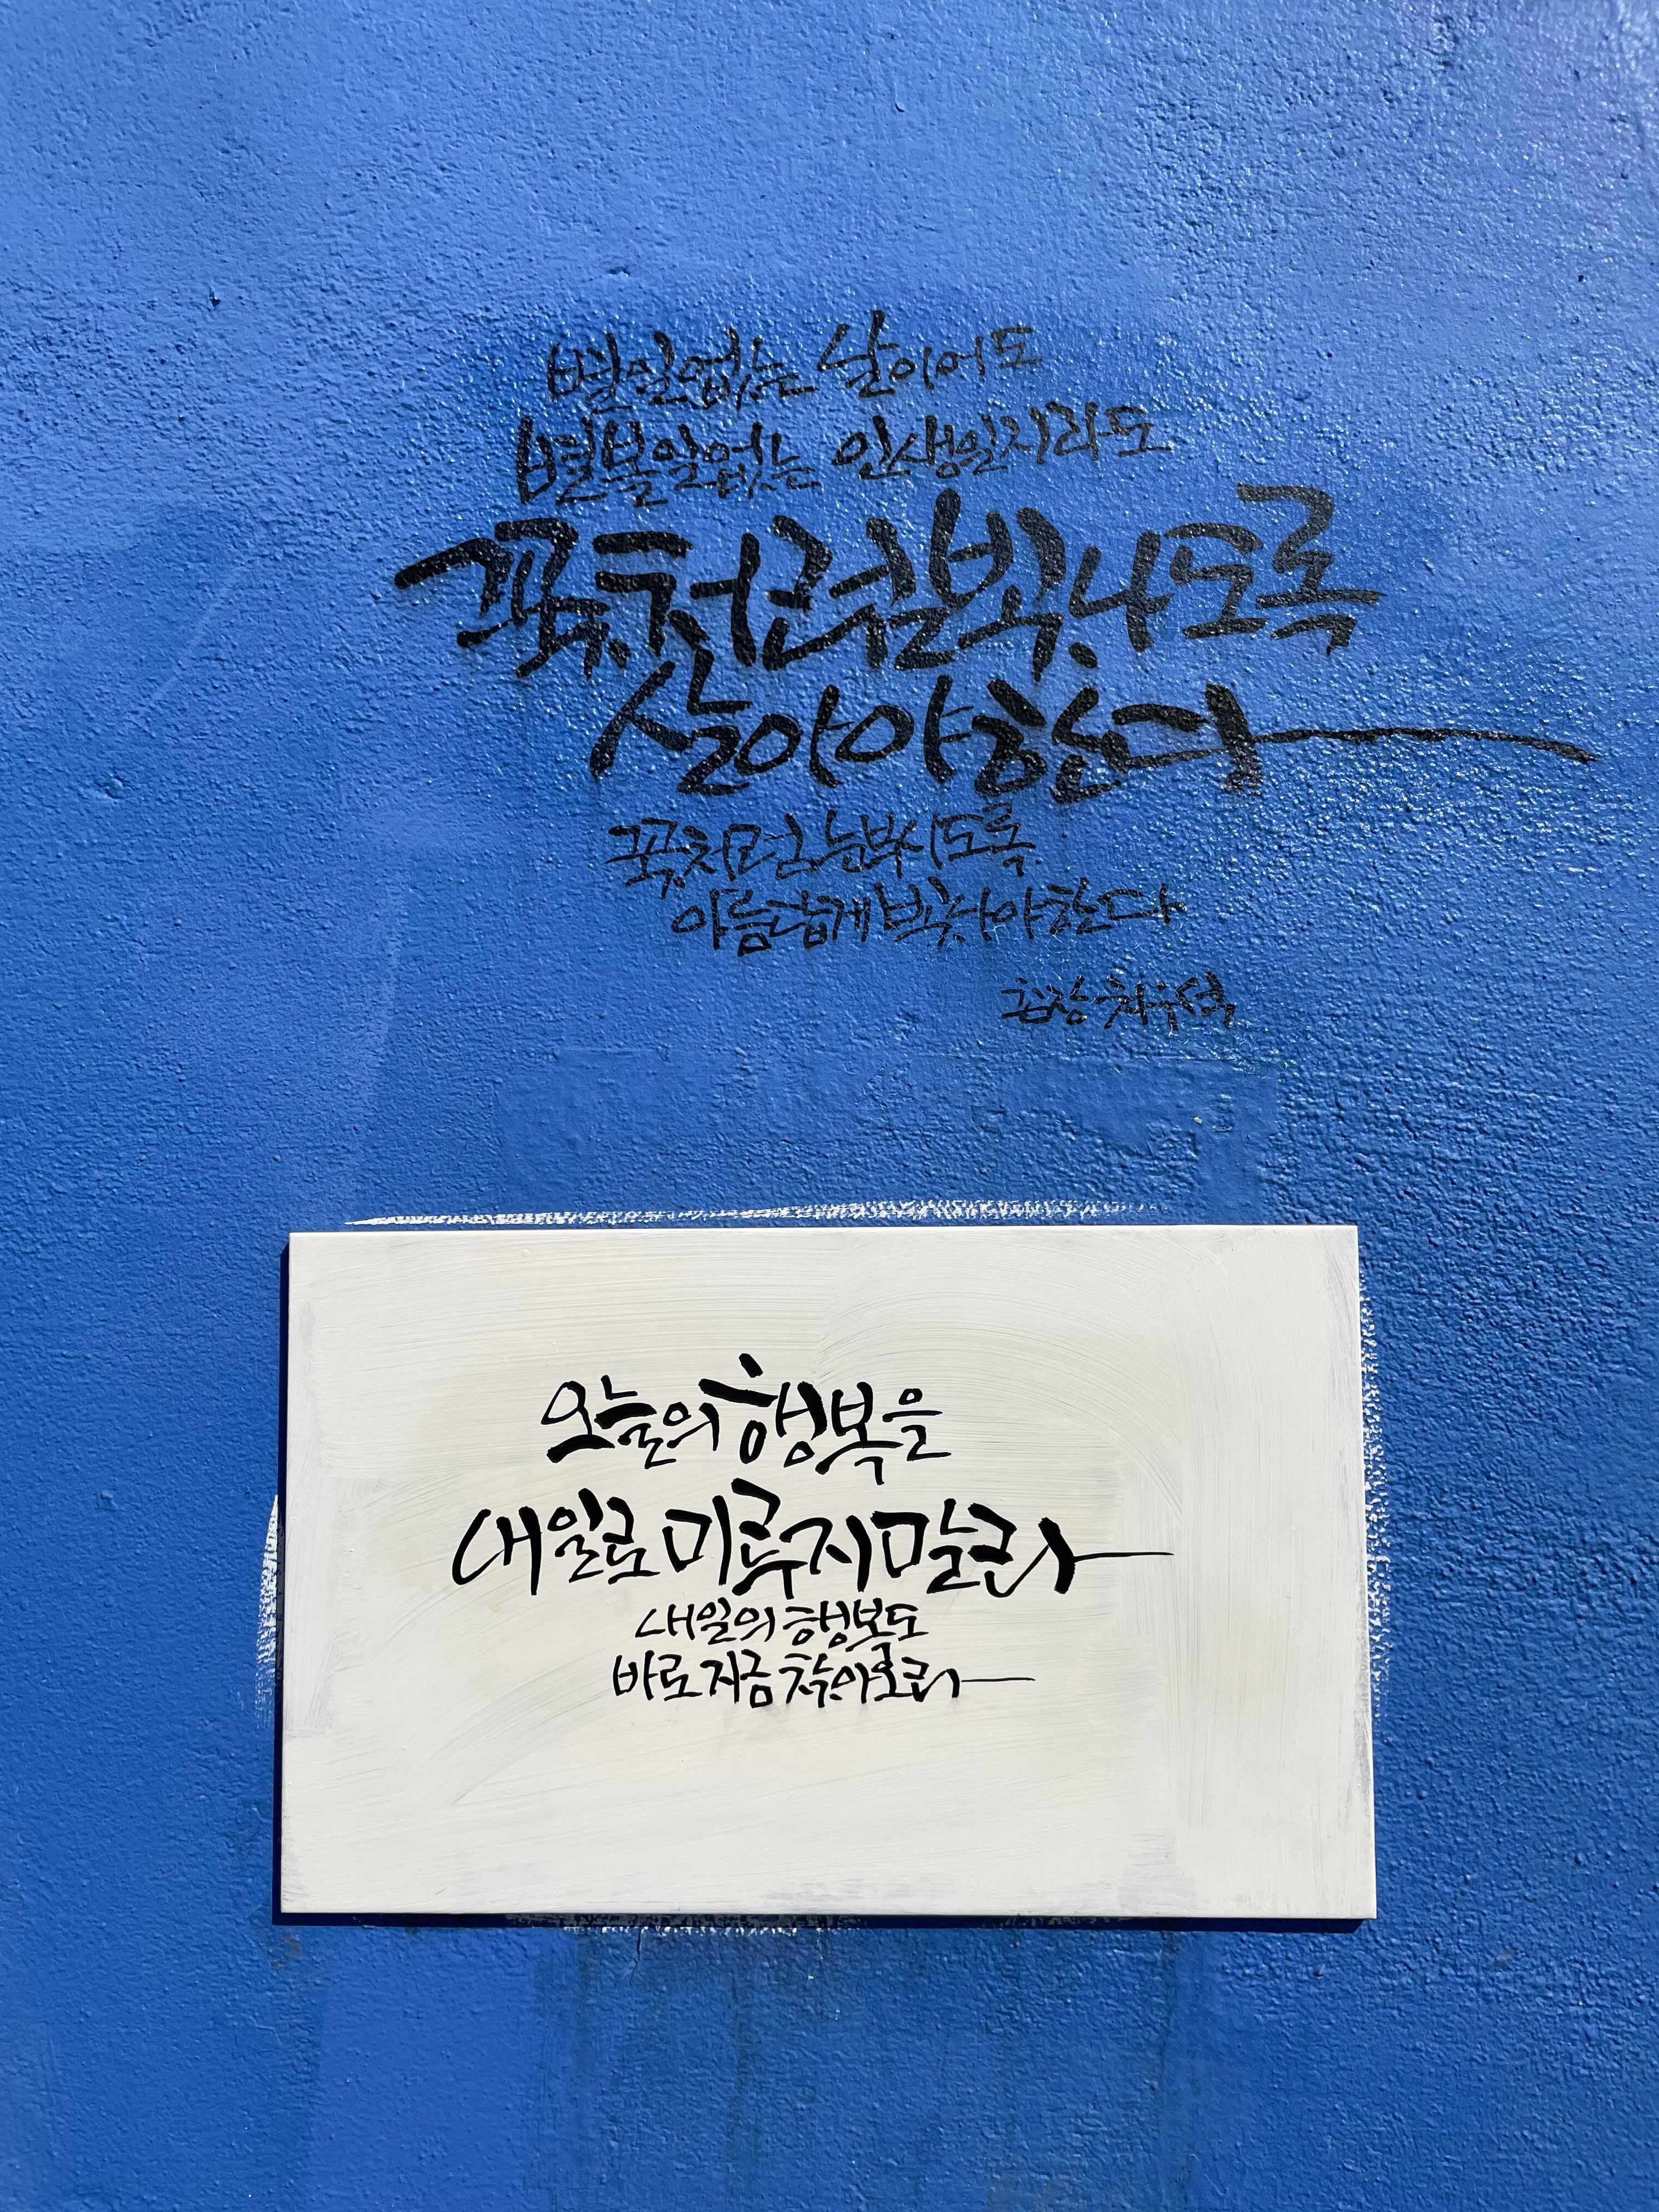 별일없는 날이어도
별볼일없는 인생일지라도
꽃처럼 빛나도록
살아야한다
꽃처럼 눈부시도록
아름답게 빛나야한다
오늘의 행복을
내일로 미루지말라
내일의 행복도
바로지금 찾아오라